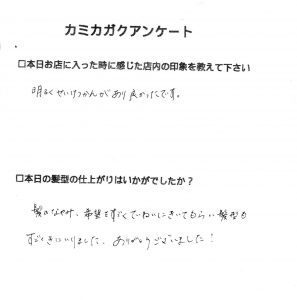 カミカガクアンケート
□本日お店に入った時に感じた店内の印象を教えて下さい
明るくせいけつかんがあり良かったです。
□本日の髪型の仕上がりはいかがでしたか?
髪のなやみ、希望をすごくていねいにきいてもらい髪型も
すごくきにいりました。ありがとうございました!